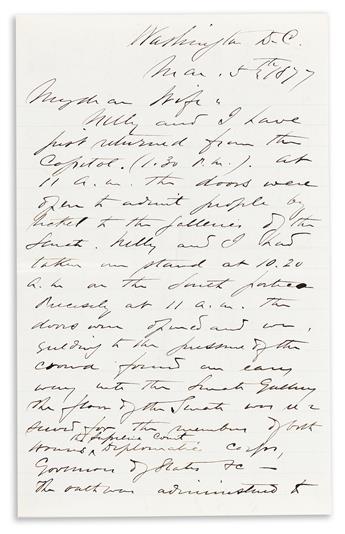 Washington D.C.
Mar. 5th 1877
My dear Wife,
Nelly and I have
just returned from the
Capitol. (1.30 P.M.). At
11 a.m. the doors were
open to admit people by
ticket to the galleries of the
Senate. Nelly and I had
taken our stand at 10.20
a.m. on the South portico
Precisely at 11 a.m. the
doors were opened and we,
yielding to the pressure of the
crowd found an easy
way into the Senate Gallery
The floor of the Senate was re-
served for the members of both
the Supreme Court
Houses ^ Diplomatic Corps,
Governors of States &c —
The oath was administered to